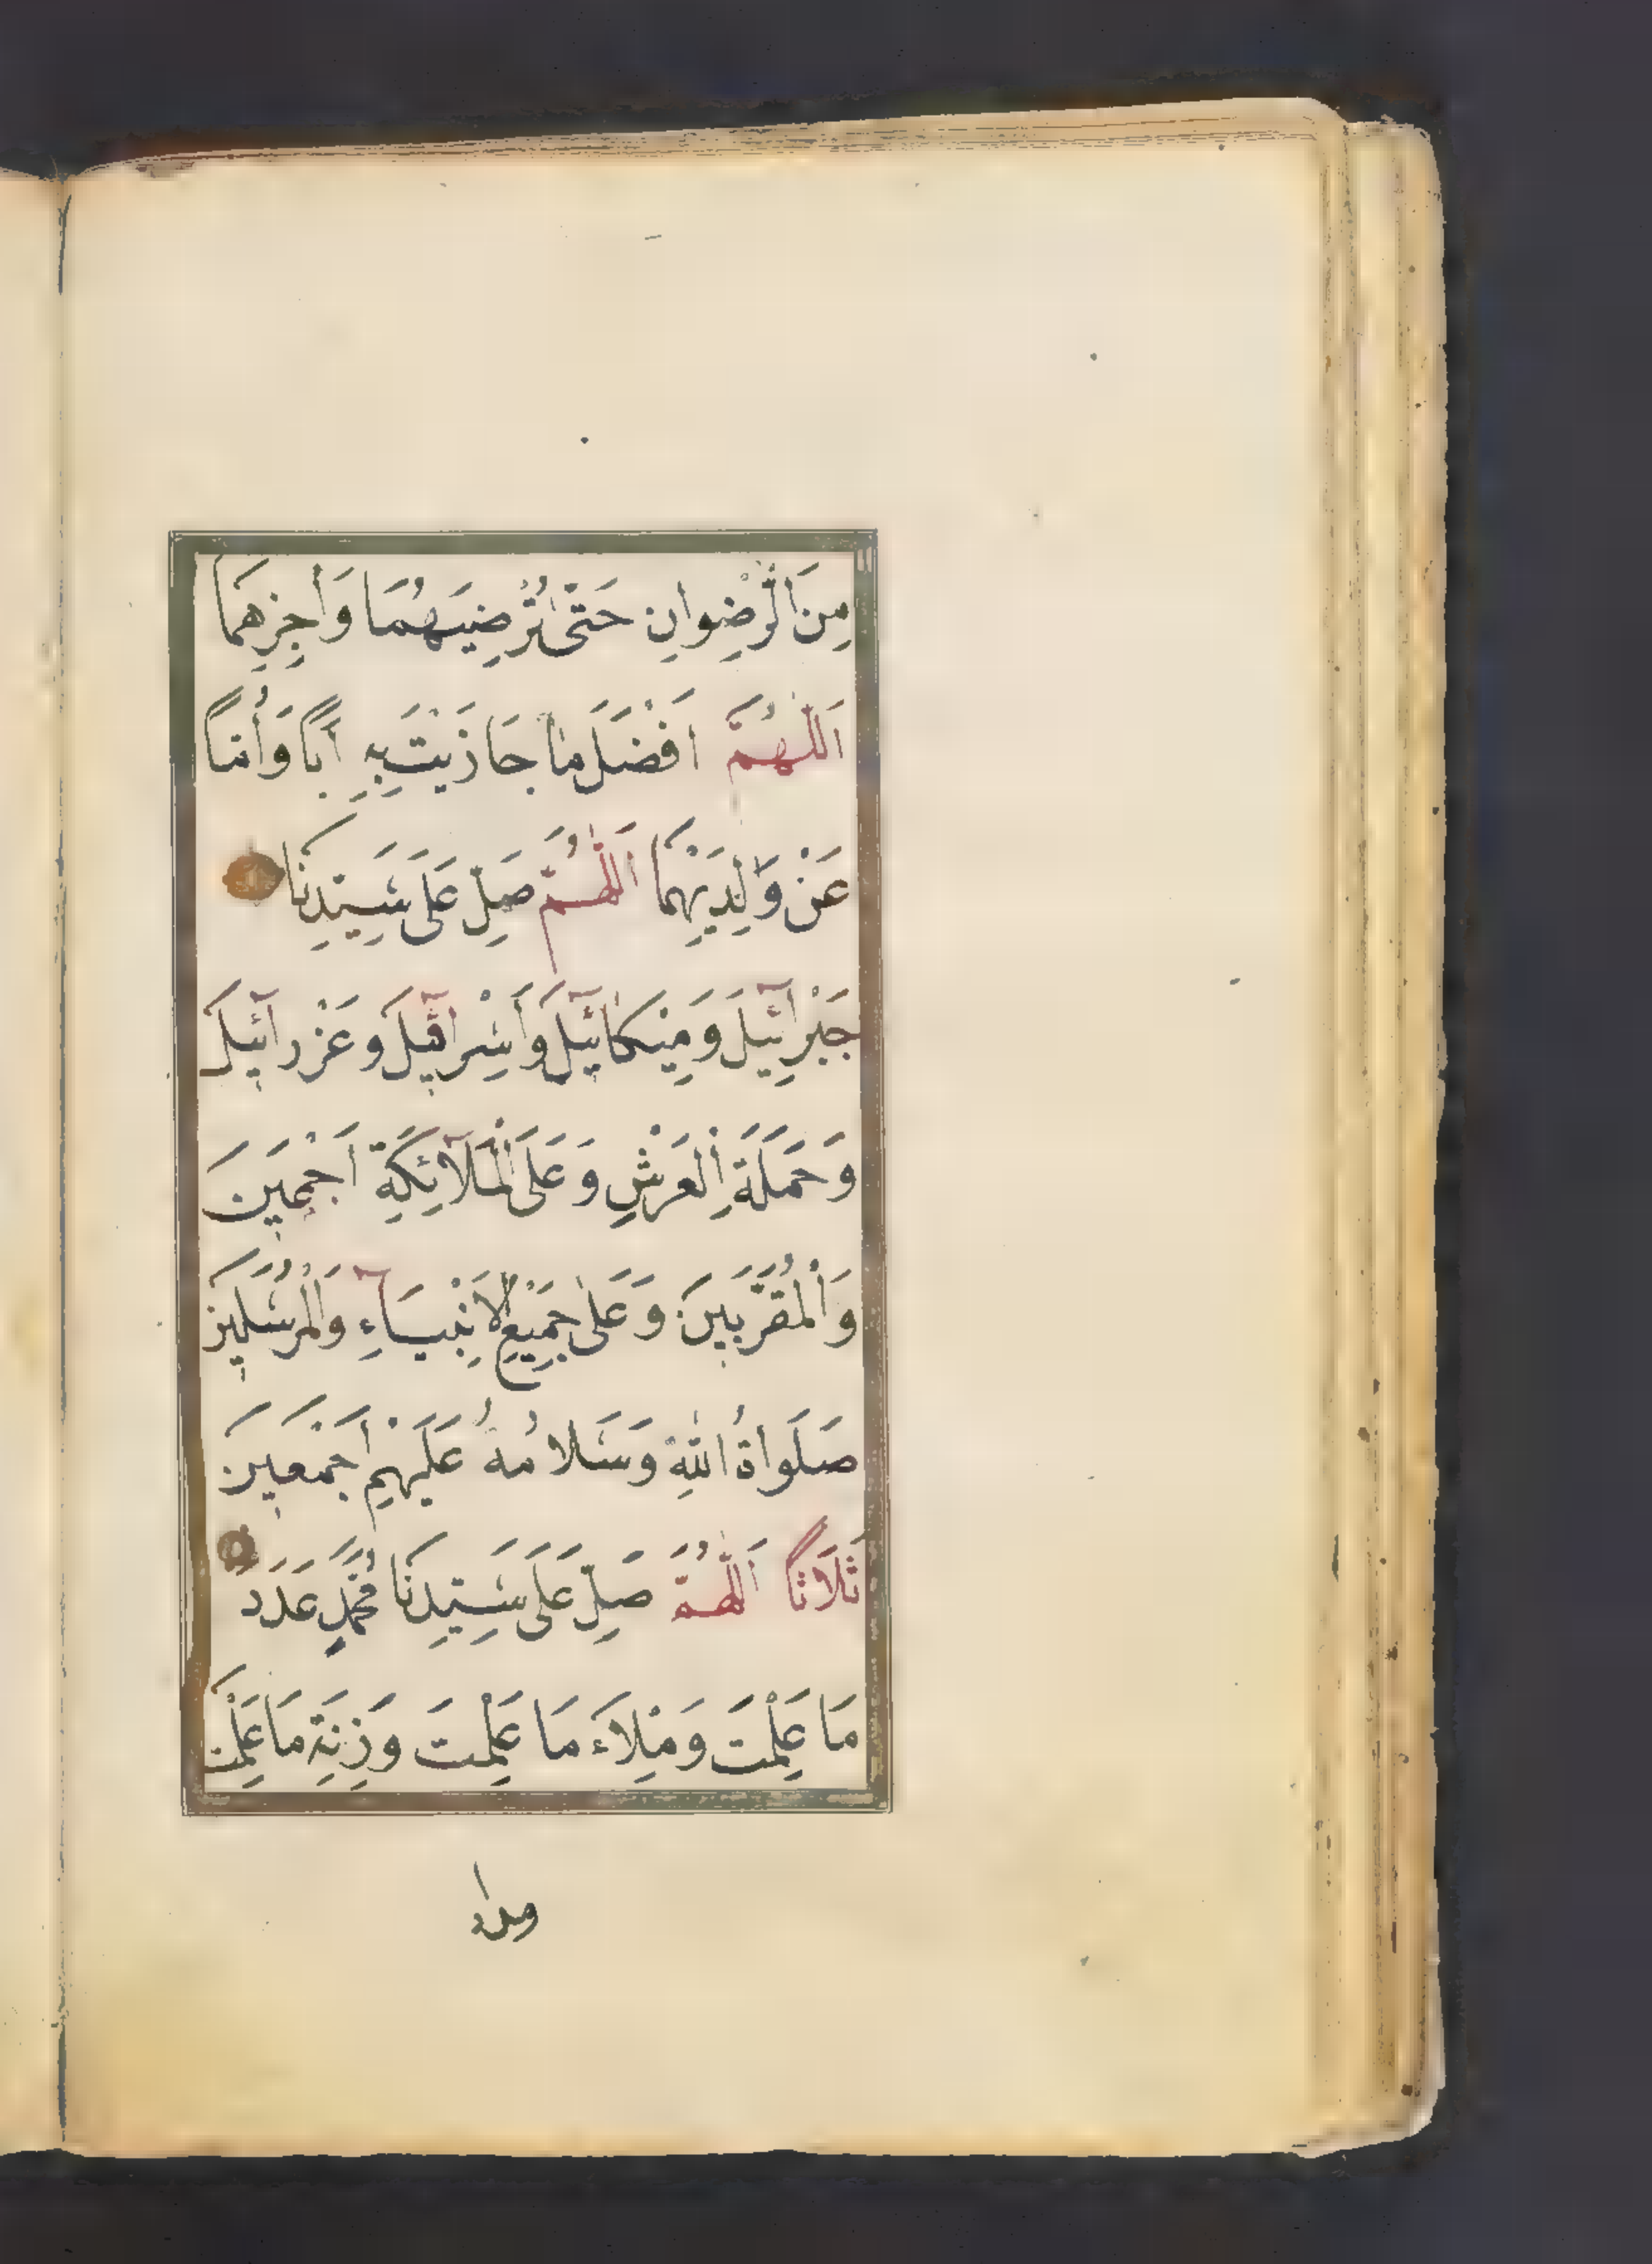 مِنَ الرِّضْوَانِ حَتّٰى تُرْضِيَهُمَا وَاَجْزِهِمَا
اَللّٰهُمَّ اَفْضَلَ مَا جَاذَيْتَ بِهِ اَبًا وَاُمًّا
عَنْ وَلِدَيْهِمَا اَللّٰهُمَّ صَلِّ عَلَى سَيِّدِنَا
جَبْرَآئِيلَ وَمِيْكَآئِيلَ وَاَسْرَافِيلَ وَعَزْرَآئِيلَ
وَحَمَلَةِ الْعَرْشِ وَعَلَى الْمَلَآئِكَةِ اَجْمَعِينَ
وَالْمُقَرَّبِينَ وَعَلٰى جَمِيْعِ الْاَنْبِيَآءِ وَالْمُرْسَلِينَ
صَلَوَاةُ اللّٰهِ وَسَلَامُهُ عَلَيْهِمْ اَجْمَعِينَ
ثَلَاثًا اَللّٰهُمَّ صَلِّ عَلَى سَيِّدِنَا مُحَمَّدٍ عَدَدَ
مَا عَلِمْتَ وَمِلَاءَ مَا عَلِمْتَ وَزِنَةِ مَا عَلِمْتَ
ومداد